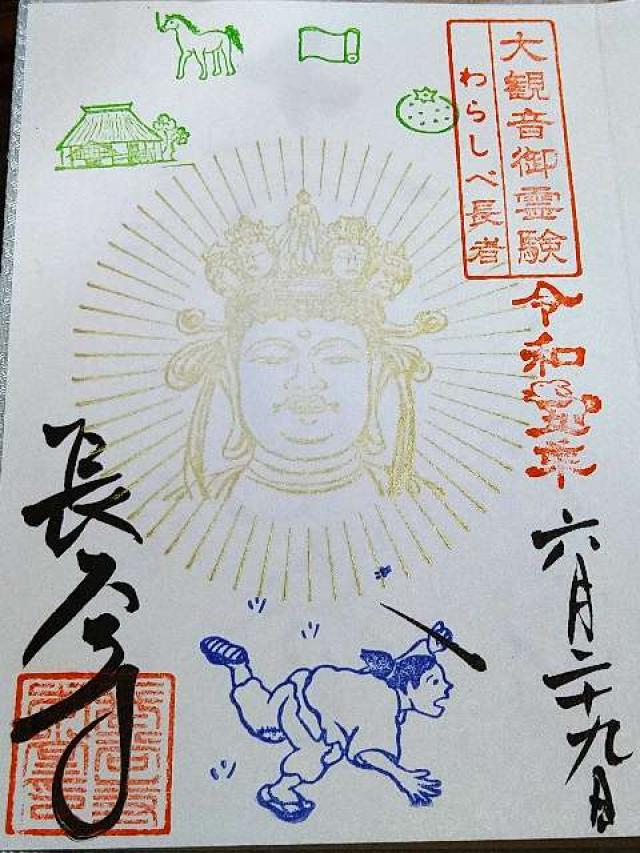 大観音御霊験
わらしべ長者
令和五年
六月二十九日
長谷寺